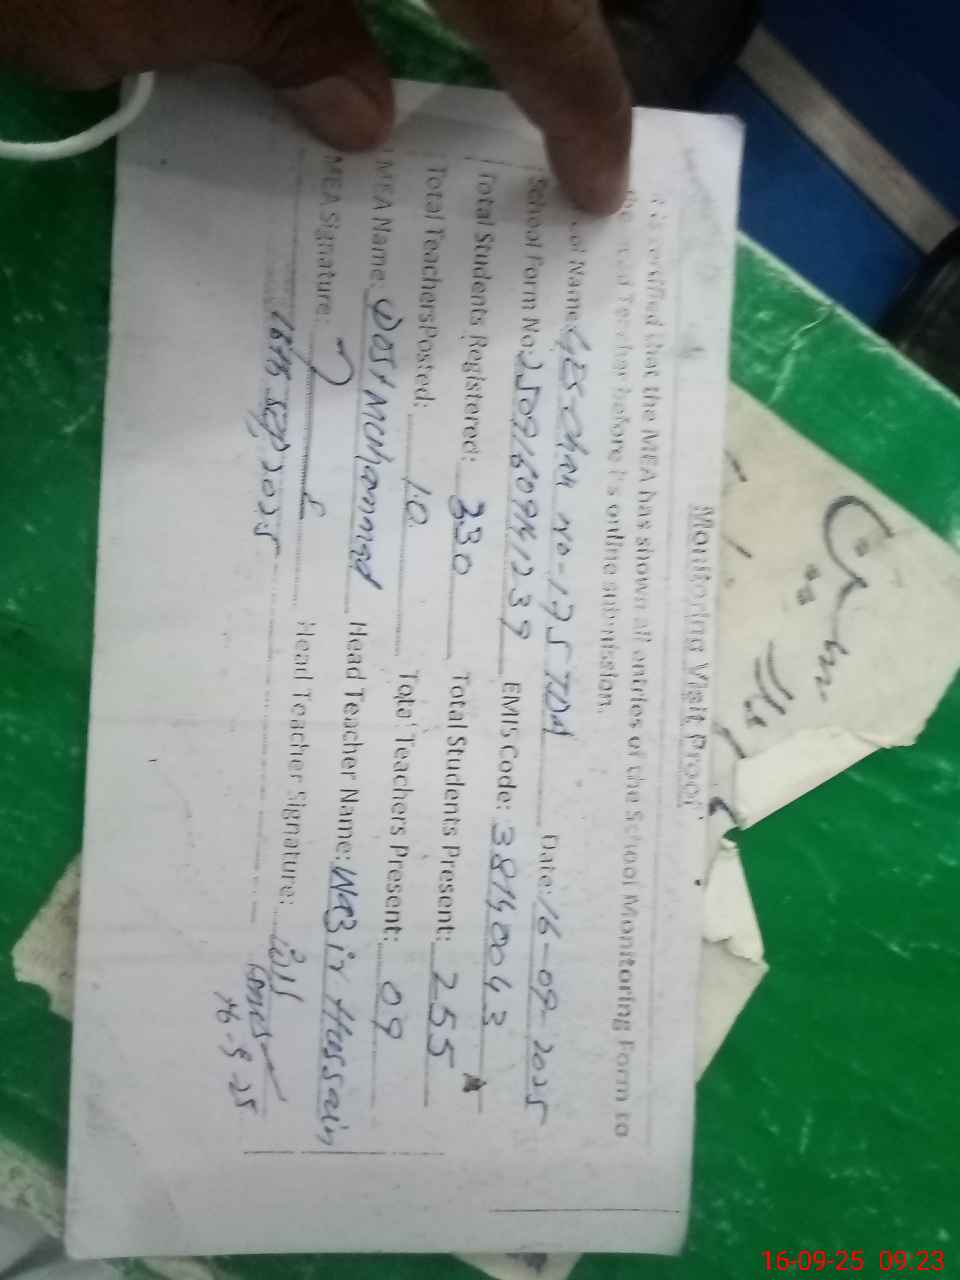 Monitoring Visit Proof
It is certified that the MEA has shown all entries of the School Monitoring Form to
the Head Teacher before its online submission.
Name: GES Chak No-175 TDA Date: 16-09-2025
School Form No: 2509160941239 EMIS Code: 38140043
Total Students Registered: 330 Total Students Present: 255
Total Teachers Posted: 10 Total Teachers Present: 09
MEA Name: Dost Muhammad Head Teacher Name: Nazir Hussain
MEA Signature: Head Teacher Signature:
16th Sep 2025
16-9-25
16-09-25 09:23